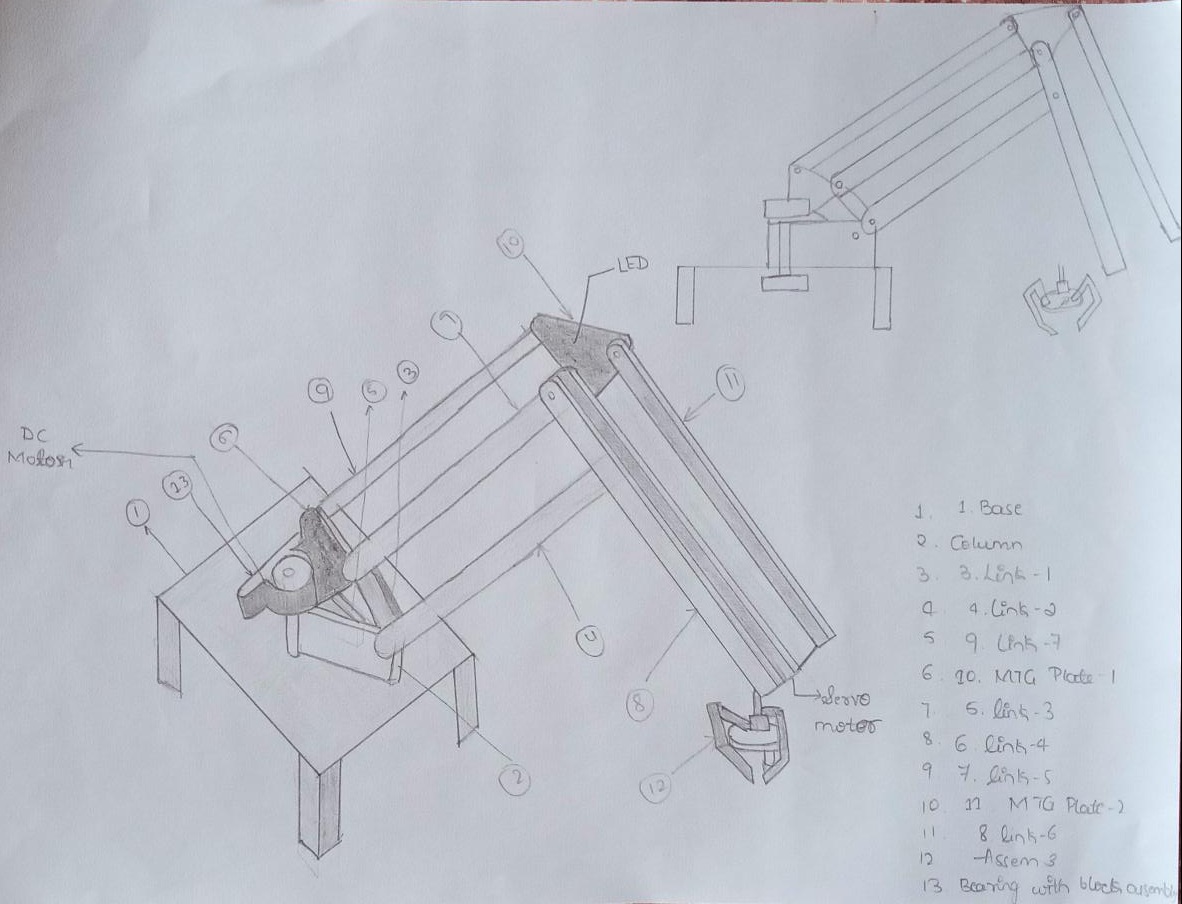 10
LED
7
11
3
5
9
6
DC
Motor
13
1
4
8
Servo
motor
12
2
1. 1. Base
2. Column
3. 3. Link-1
4 4. Link-2
5 9. Link-7
6 10. MTG Plate-1
7. 5. link-3
8. 6 link-4
9 7. link-5
10. 11 MTG Plate-2
11 8 link-6
12 Assem 3
13 Bearing with block assembly